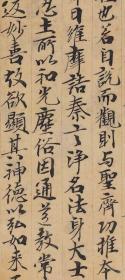 也若自說而觀則与聖齊功推本
曰維摩詰秦言淨名法身大士
土所以和光塵俗因通道教常
妙善故欲顯其神德以弘如來